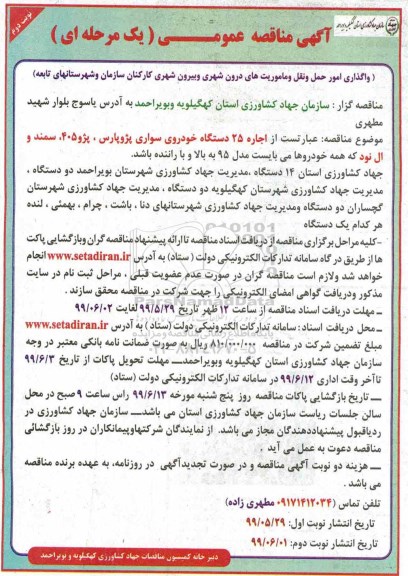 نوبت دوم
سازمان جهاد کشاورزی استان کهگیلویه وبویراحمد
آگهی مناقصه عمومی ( یک مرحله ای )
( واگذاری امور حمل ونقل وماموریت های درون شهری وبیرون شهری کارکنان سازمان وشهرستانهای تابعه)
مناقصه گزار : سازمان جهاد کشاورزی استان کهگیلویه وبویراحمد به آدرس یاسوج بلوار شهید
مطهری
موضوع مناقصه: عبارتست از اجاره ۲۵ دستگاه خودروی سواری پژوپارس ، پژو۴۰۵، سمند و
ال نود که همه خودروها می بایست مدل ۹۵ به بالا و با راننده باشد.
جهاد کشاورزی استان ۱۴ دستگاه ،مدیریت جهاد کشاورزی شهرستان بویراحمد دو دستگاه ،
مدیریت جهاد کشاورزی شهرستان کهگیلویه دو دستگاه ، مدیریت جهاد کشاورزی شهرستان
گچساران دو دستگاه ومدیریت جهاد کشاورزی شهرستانهای دنا ، باشت ، چرام ، بهمئی ، لنده
هر کدام یک دستگاه
-کلیه مراحل برگزاری مناقصه از دریافت اسناد مناقصه تا ارائه پیشنهاد مناقصه گران وبازگشایی پاکت
ها از طریق در گاه سامانه تدارکات الکترونیکی دولت ( ستاد) به آدرس www.setadiran.ir انجام
خواهد شد ولازم است مناقصه گران در صورت عدم عضویت قبلی ، مراحل ثبت نام در سایت
مذکور ودریافت گواهی امضای الکترونیکی را جهت شرکت در مناقصه محقق سازند .
ـ مهلت دریافت اسناد مناقصه از ساعت ۱۲ ظهر تاریخ ۹۹/۵/۲۹ لغایت ۹۹/۰۶/۰۲
ـ محل دریافت اسناد: سامانه تدارکات الکترونیکی دولت (ستاد) به آدرس www.setadiran.ir
مبلغ تضمین شرکت در مناقصه ۸۱۰/۰۰۰/۰۰۰ ریال به صورت ضمانت نامه بانکی معتبر در وجه
سازمان جهاد کشاورزی استان کهگیلویه وبویراحمدـــ مهلت تحویل پاکات از تاریخ ۹۹/۶/۳
تاآخر وقت اداری ۹۹/۶/۱۲ در سامانه تدارکات الکترونیکی دولت (ستاد)
ـــ تاریخ بازگشایی پاکات مناقصه روز پنج شنبه مورخه ۹۹/۶/۱۳ راس ساعت ۹صبح در محل
سالن جلسات ریاست سازمان جهاد کشاورزی استان می باشدـــ سازمان جهاد کشاورزی در
ردیاقبول پیشنهاددهندگان مجاز می باشد. از نمایندگان شرکتهاوپیمانکاران در روز بازگشائی
مناقصه دعوت به عمل می آید .
ـــ هزینه دو نوبت آگهی مناقصه و در صورت تجدیدآگهی در روزنامه، به عهده برنده مناقصه
می باشد .
تلفن تماس (۰۹۱۷۱۴۱۲۰۳۴ مطهری زاده)
تاریخ انتشار نوبت اول: ۹۹/۰۵/۲۹
تاریخ انتشار نوبت دوم: ۹۹/۰۶/۰۱
دبیر خانه کمیسیون مناقصات جهاد کشاورزی کهگیلویه و بویراحمد